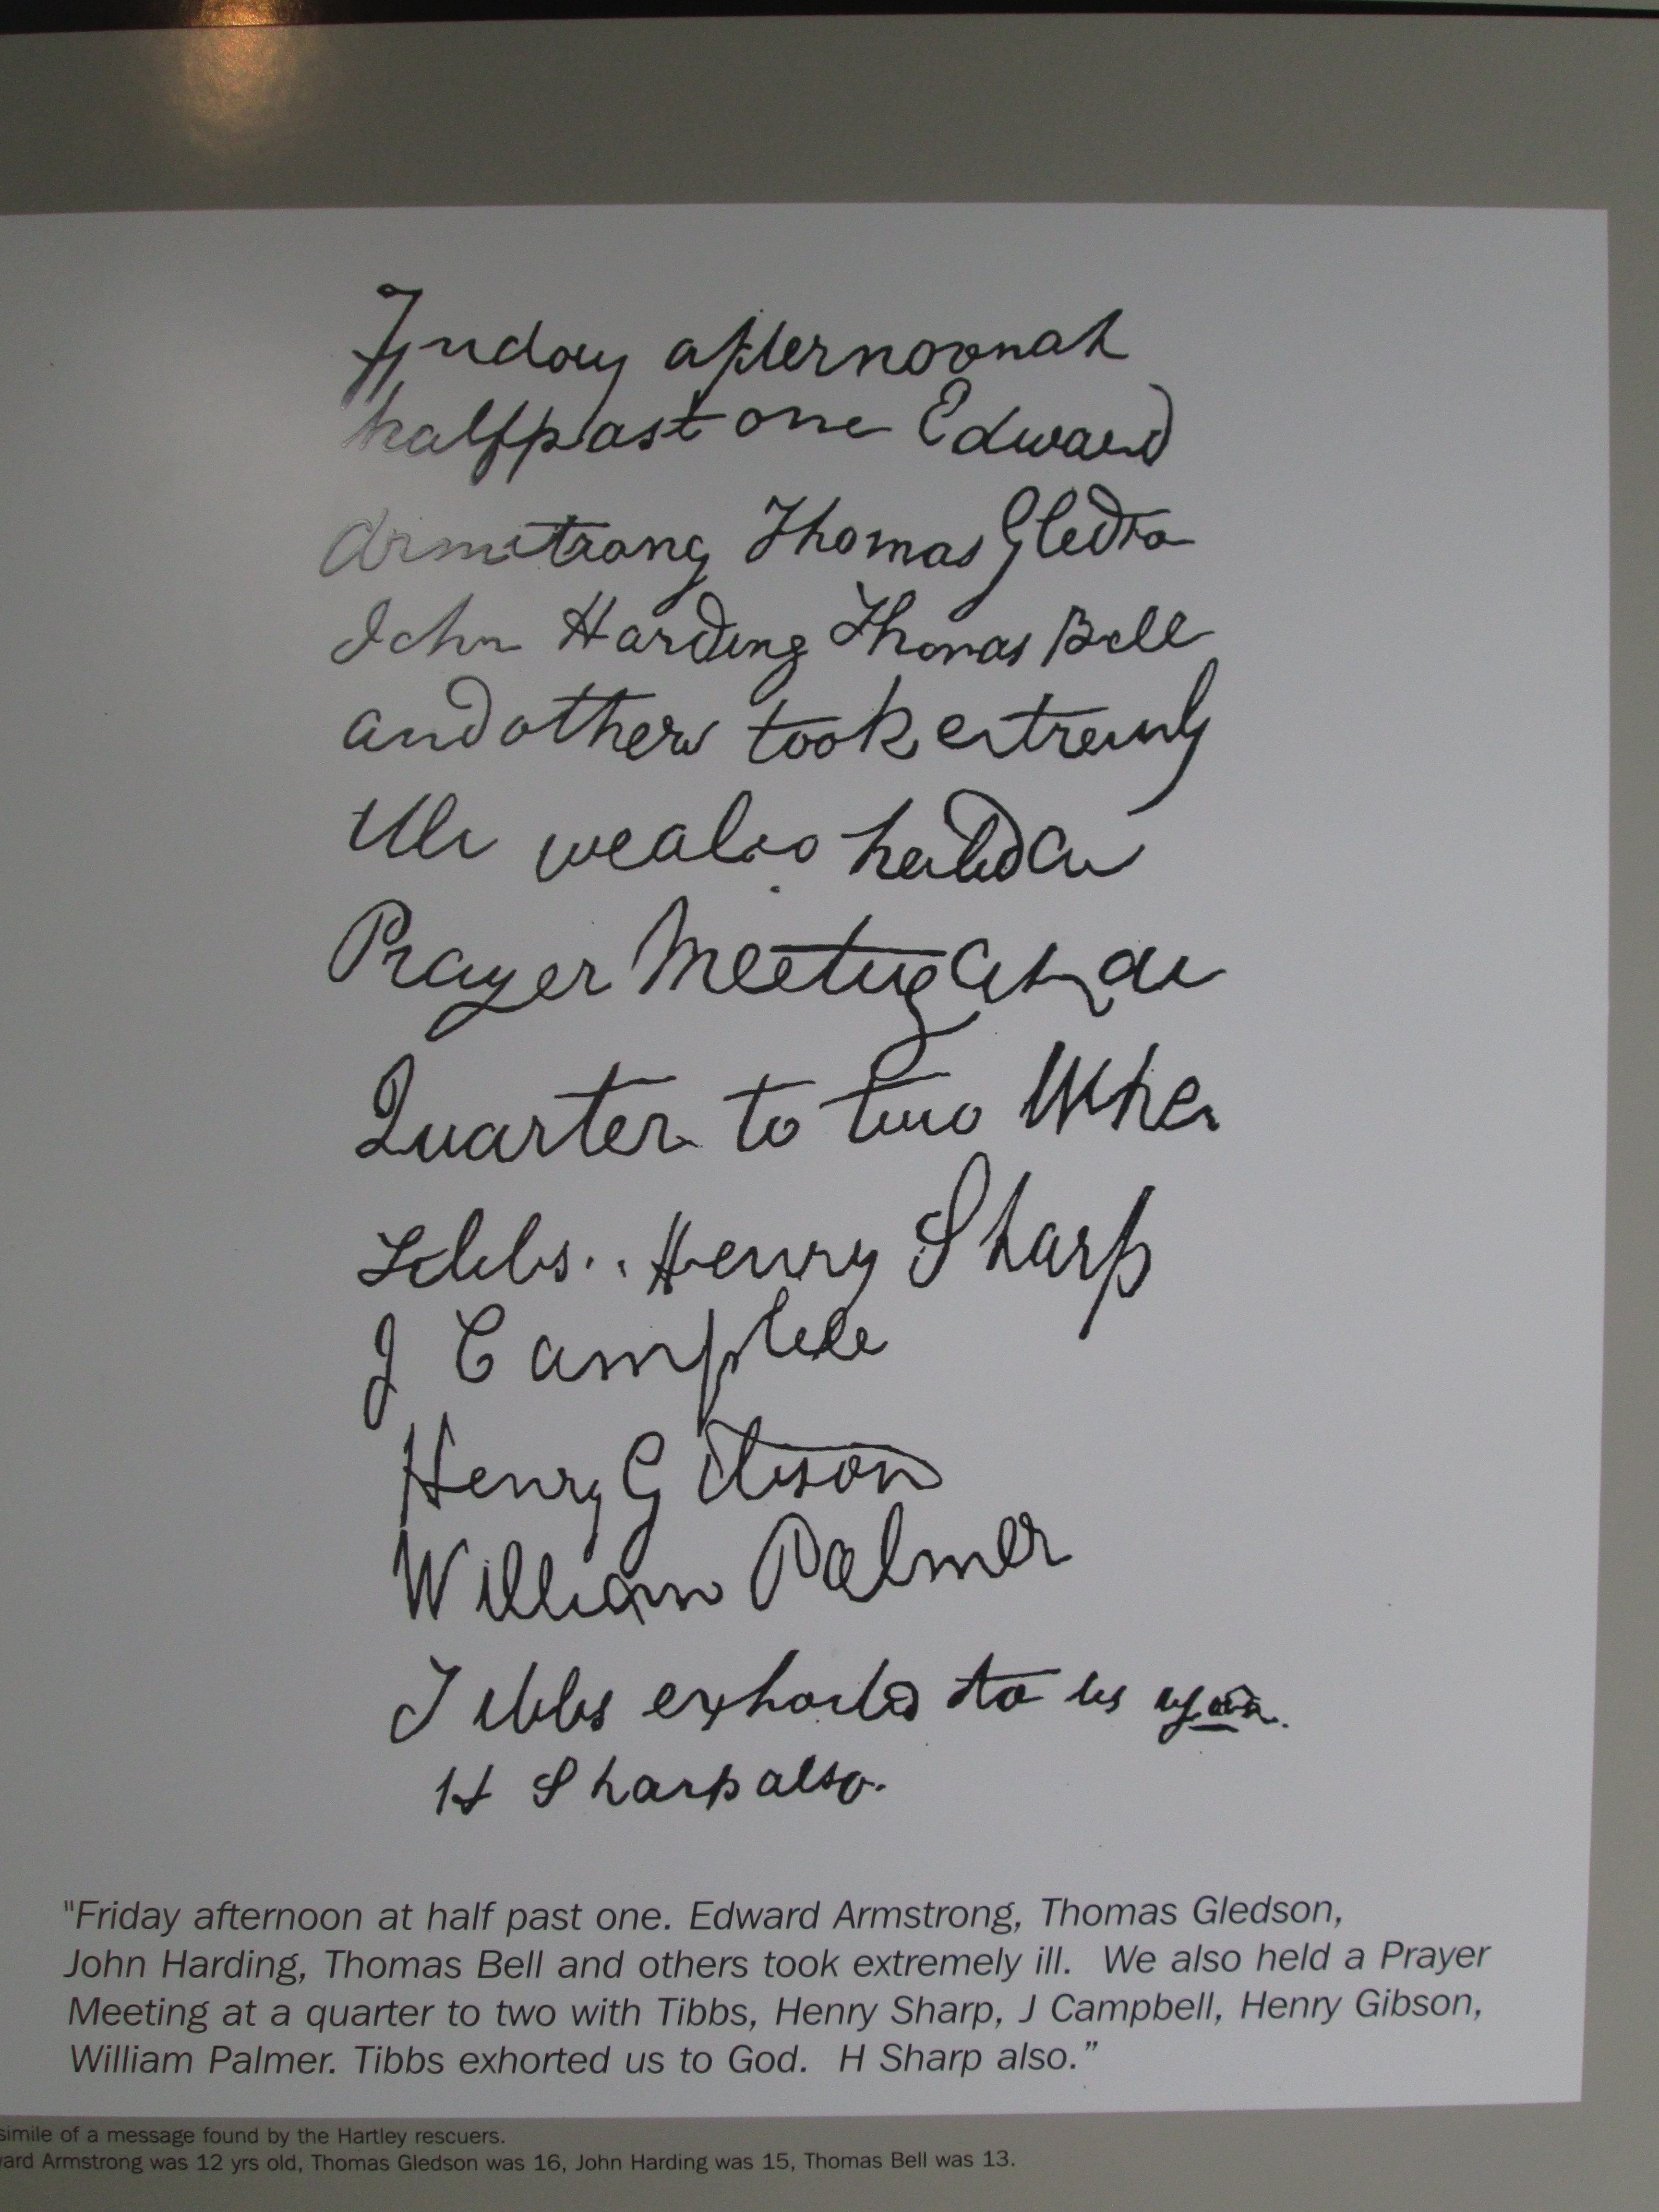 Friday afternoon at
half past one Edward
Armstrong Thomas Gledso
John Harding Thomas Bell
and others took extremly
ill we also held a
Prayer Meeting at a
Quarter to two When
Tibbs.. Henry Sharp
J Campbell
Henry Gibson
William Palmer
Tibbs exhorted to us again.
H Sharp also.
"Friday afternoon at half past one. Edward Armstrong, Thomas Gledson,
John Harding, Thomas Bell and others took extremely ill. We also held a Prayer
Meeting at a quarter to two with Tibbs, Henry Sharp, J Campbell, Henry Gibson,
William Palmer. Tibbs exhorted us to God. H Sharp also."
simile of a message found by the Hartley rescuers.
ward Armstrong was 12 yrs old, Thomas Gledson was 16, John Harding was 15, Thomas Bell was 13.